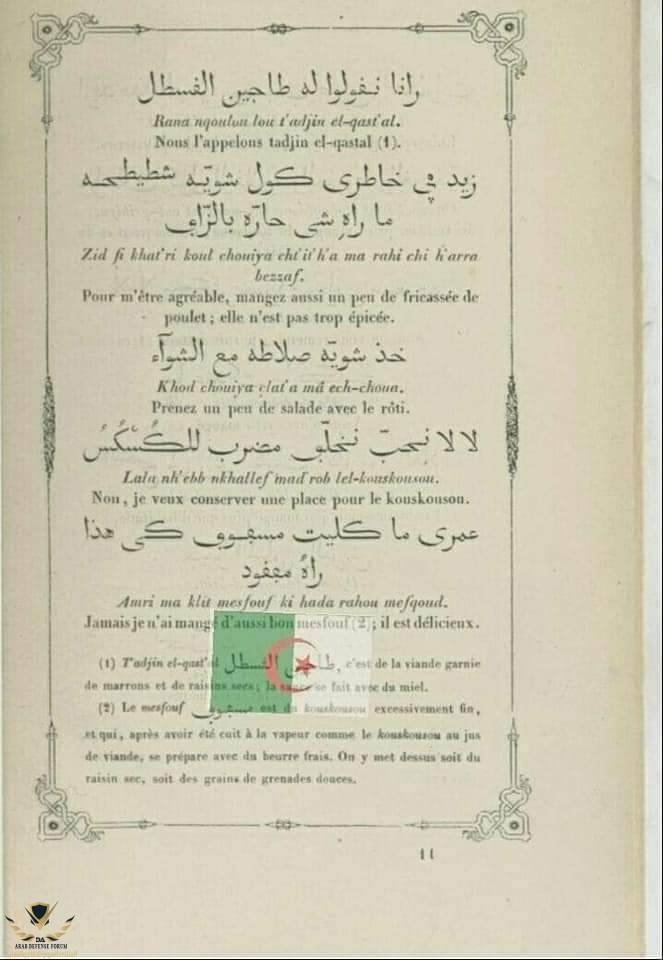 رانا نـڢولوا له طاجين الڢسطل
Rana nqoulou lou t'adjin el-qast'al.
Nous l'appelons tadjin el-qastal (1).
زيد ڢي خاطري كول شويّه شطيطحه
ما راهِ شي حارّه بالزّاڢ
Zid fi khat'ri koul chouiya cht'it'h'a ma rahi chi h'arra
bezzaf.
Pour m'être agréable, mangez aussi un peu de fricassée de
poulet ; elle n'est pas trop épicée.
خذ شويّه صلاطه مع الشوآء
Khod chouiya çlat'a mâ ech-choua.
Prenez un peu de salade avec le rôti.
لا لا نحبّ نخلّڢ مضرب للكُسْكُسُ
Lala nh'ebb nkhallef mad'rob lel-kouskousou.
Non, je veux conserver une place pour le kouskousou.
عمري ما كليت مسڢوڢ كي هذا
راهُ مڢڢود
Amri ma klit mesfouf ki hada rahou mefqoud.
Jamais je n'ai mangé d'aussi bon mesfouf (2) ; il est délicieux.
(1) T'adjin el-qast'al طاجين الڢسطل, c'est de la viande garnie
de marrons et de raisins secs ; la sauce se fait avec du miel.
(2) Le mesfouf مسڢوڢ est du kouskousou excessivement fin,
et qui, après avoir été cuit à la vapeur comme le kouskousou au jus
de viande, se prépare avec du beurre frais. On y met dessus soit du
raisin sec, soit des grains de grenades douces.
11
DA
ARAB DEFENSE FORUM